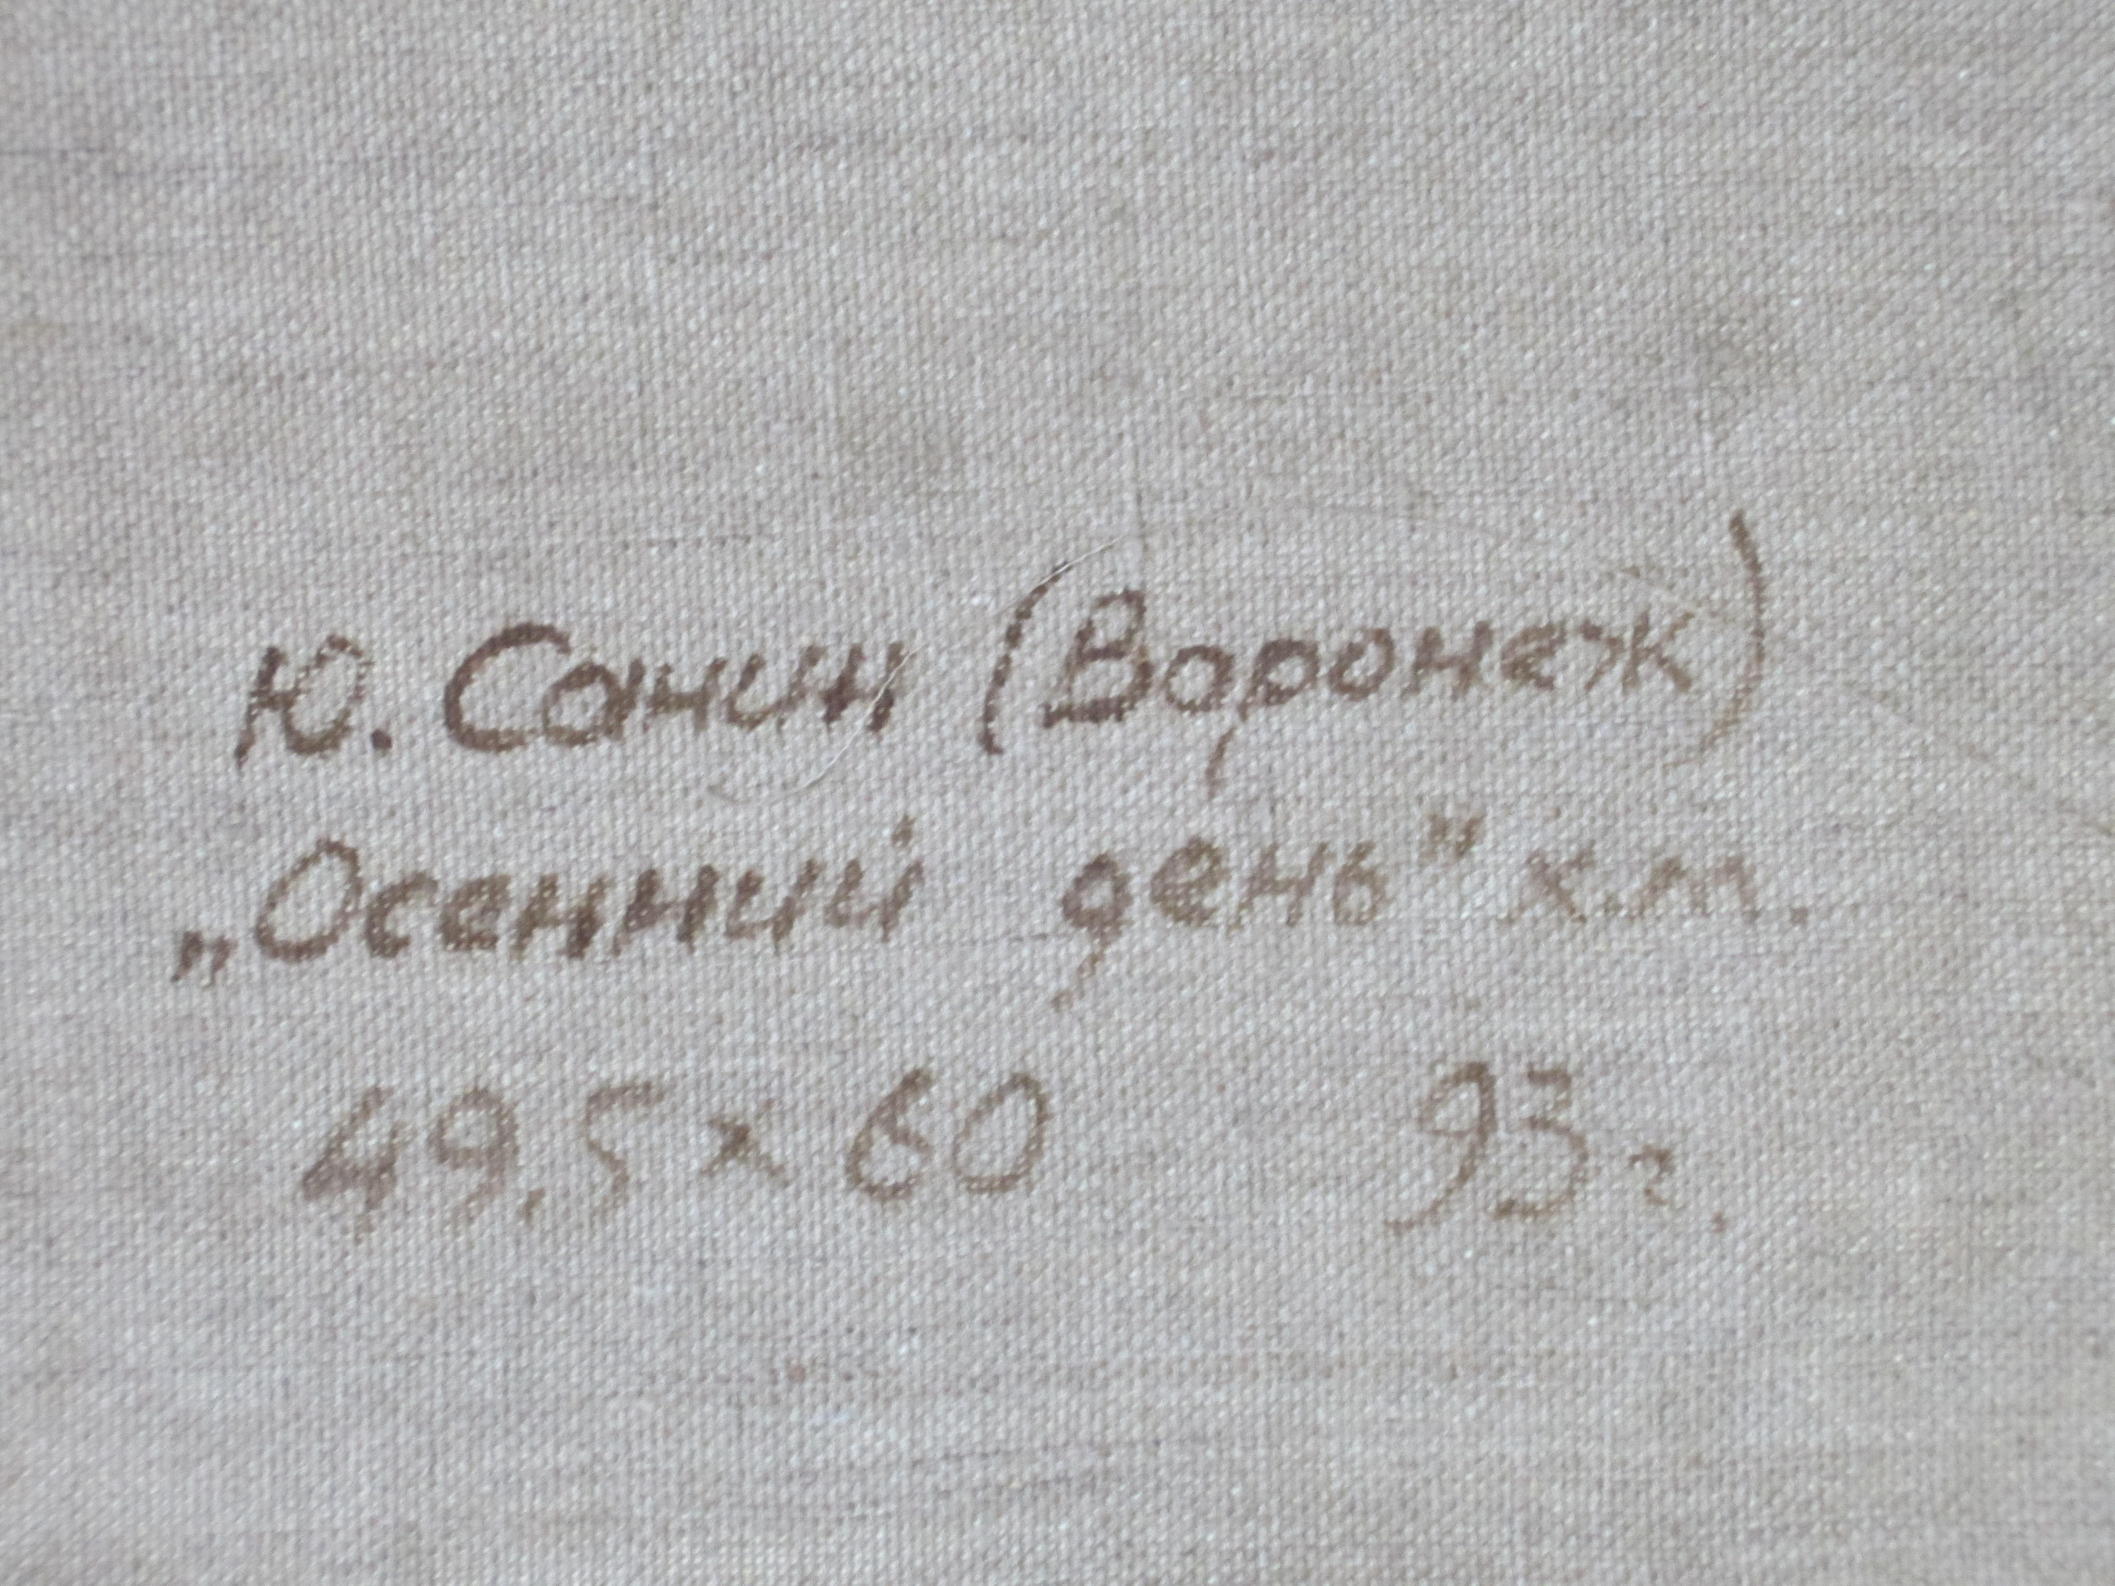 Ю. Санин (Воронеж)
„Осенний день" х.м.
49,5 х 60 93г.